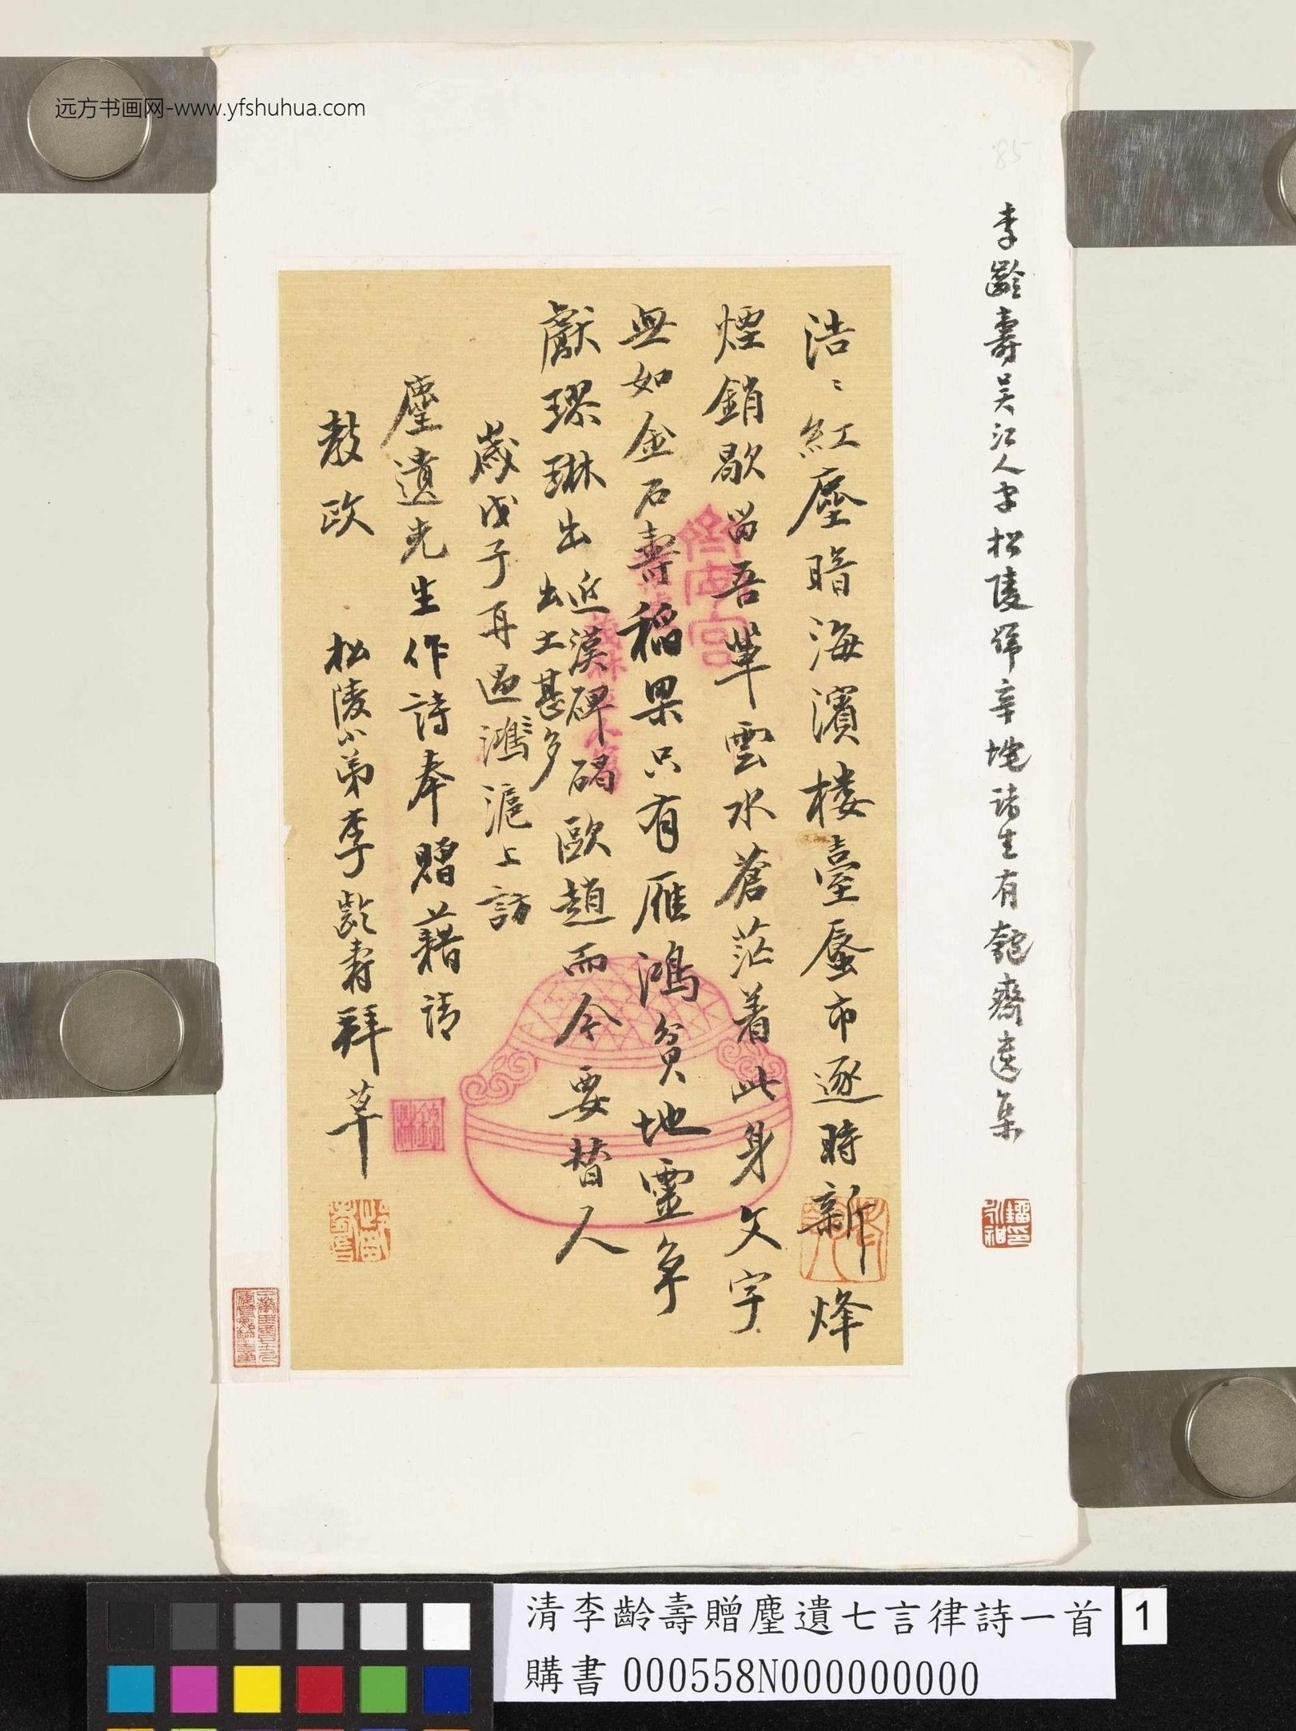 远方书画网-www.yfshuhua.com
85
李齡壽吴江人字松陵號辛垞諸生有匏齋遺集
浩〻紅塵暗海濱樓臺蜃市逐時新烽
煙銷歇留吾輩雲水蒼茫着此身文字
無如金石壽稻粱只有雁鴻貧地靈爭
獻璆琳出
近漢碑碣
出土甚多
歐趙而今要替人
歲戊子再過滬上訪
塵遺先生作詩奉贈藉請
教政 松陵小弟李齡壽拜草
清李齡壽贈塵遺七言律詩一首
購書 000558N000000000
1